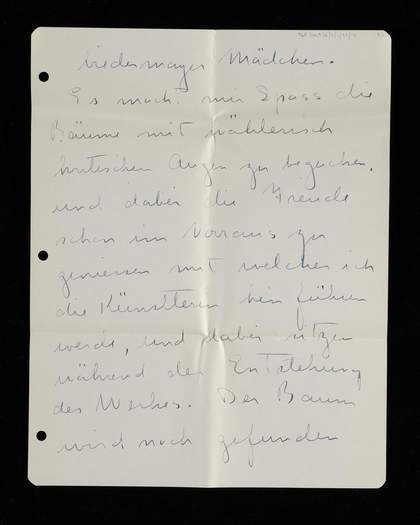 biedermayer Mädchen.
Es macht mir Spass die
Bäume mit wählerisch
kritischen Augen zu begucken,
und dabei die Freude
schon im Vorraus zu
geniessen mit welcher ich
die Künstlerin hin führen
werde, und dabei sitzen
während der Entstehung
des Werkes. Der Baum
wird noch gefunden